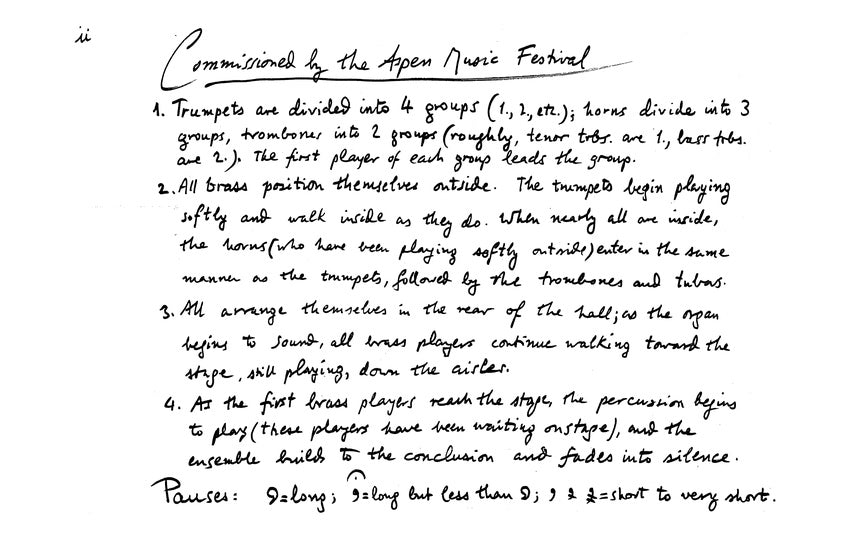 ii
Commissioned by the Aspen Music Festival
1. Trumpets are divided into 4 groups (1., 2., etc.); horns divide into 3
groups, trombones into 2 groups (roughly, tenor trbs. are 1., bass trbs.
are 2.). The first player of each group leads the group.
2. All brass position themselves outside. The trumpets begin playing
softly and walk inside as they do. When nearly all are inside,
the horns (who have been playing softly outside) enter in the same
manner as the trumpets, followed by the trombones and tubas.
3. All arrange themselves in the rear of the hall; as the organ
begins to sound, all brass players continue walking toward the
stage, still playing, down the aisles.
4. As the first brass players reach the stage, the percussion begins
to play (these players have been waiting onstage), and the
ensemble builds to the conclusion and fades into silence.
Pauses: =long; =long but less than ; =short to very short.